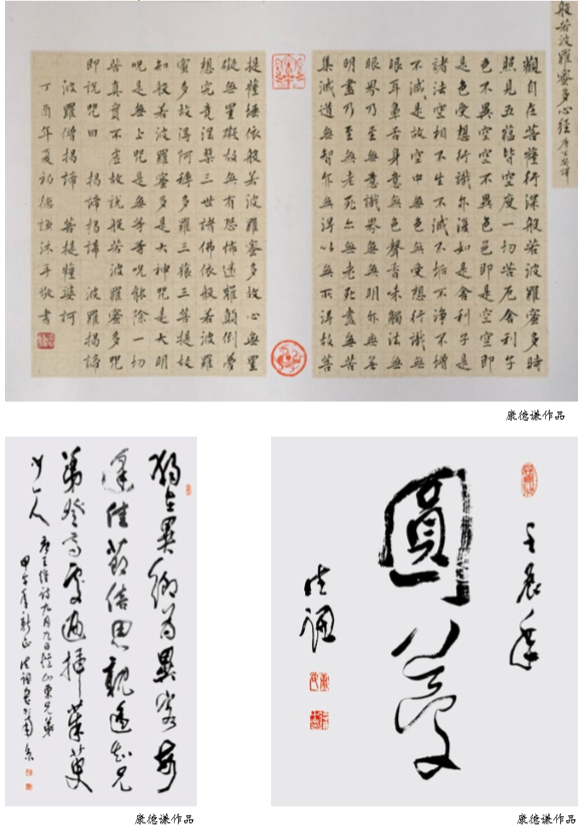 般若波羅蜜多心經 唐玄奘譯
觀自在菩薩行深般若波羅蜜多時
照見五蘊皆空度一切苦厄舍利子
色不異空空不異色色即是空空即
是色受想行識亦復如是舍利子是
諸法空相不生不滅不垢不淨不增
不減是故空中無色無受想行識無
眼耳鼻舌身意無色聲香味觸法無
眼界乃至無意識界無無明亦無無
明盡乃至無老死亦無老死盡無苦
集滅道無智亦無得以無所得故菩
提薩埵依般若波羅蜜多故心無罣
礙無罣礙故無有恐怖遠離顛倒夢
想究竟涅槃三世諸佛依般若波羅
蜜多故得阿耨多羅三藐三菩提故
知般若波羅蜜多是大神咒是大明
咒是無上咒是無等等咒能除一切
苦真實不虛故說般若波羅蜜多咒
即說咒曰 揭諦揭諦 波羅揭諦
波羅僧揭諦 菩提薩婆訶
丁酉年夏初德謙沐手敬書
康德谦作品
獨在異鄉為異客每
逢佳節倍思親遙知兄
弟登高處遍插茱萸
少一人
唐王維詩九月九日憶山東兄弟
甲午年新正德謙書於南京
康德谦作品
壬辰年
圓夢
德謙
康德谦作品